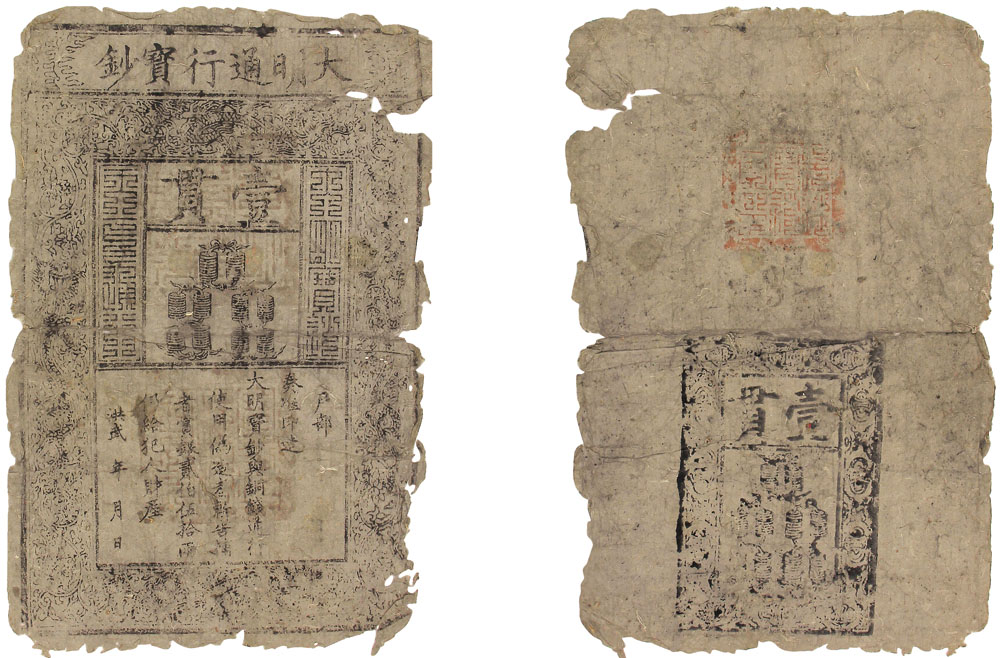 大明通行寶鈔
壹貫
大明寶鈔
天下通行
戶部
奏准印造
大明寶鈔與銅錢通行
使用偽造者斬告捕
者賞銀貳佰伍拾兩
仍給犯人財產
洪武 年 月 日
壹貫